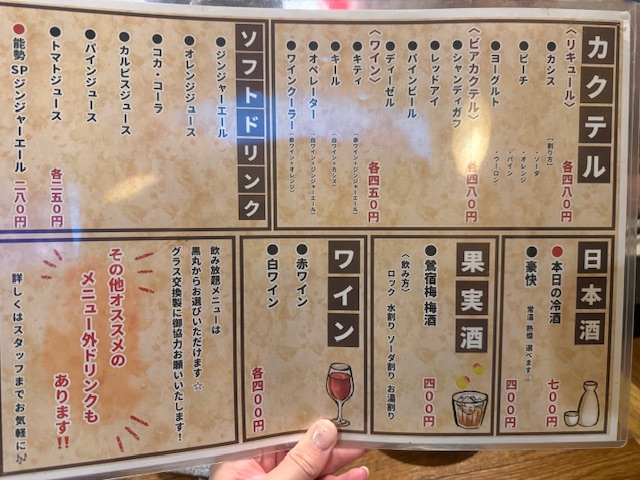 カクテル
〈リキュール〉
●カシス
●ピーチ
●ヨーグルト
[割り方]
・ソーダ
・パイン
・オレンジ
・ウーロン
各四八〇円
〈ビアカクテル〉
●シャンディガフ
●レッドアイ
●パインビール
●ディーゼル
各四八〇円
〈ワイン〉
●キティ (赤ワイン+ジンジャーエール)
●キール (白ワイン+カシス)
●オペレーター (白ワイン+ジンジャーエール)
●ワインクーラー (赤ワイン+オレンジ)
各四五〇円
ソフトドリンク
●ジンジャーエール
●オレンジジュース
●コカ・コーラ
●カルピスジュース
●パインジュース
●トマトジュース
各二五〇円
●能勢SPジンジャーエール 二八〇円
日本酒
●本日の冷酒 七〇〇円
●豪快 四〇〇円
常温 熱燗 選べます
果実酒
●鶯宿梅 梅酒 四〇〇円
〈飲み方〉
ロック 水割り ソーダ割り お湯割り
ワイン
●赤ワイン
●白ワイン
各四〇〇円
飲み放題メニューは
黒丸からお選びいただけます☆
グラス交換製に御協力お願いいたします!
その他オススメの
メニュー外ドリンクも
あります!!
詳しくはスタッフまでお気軽に♪